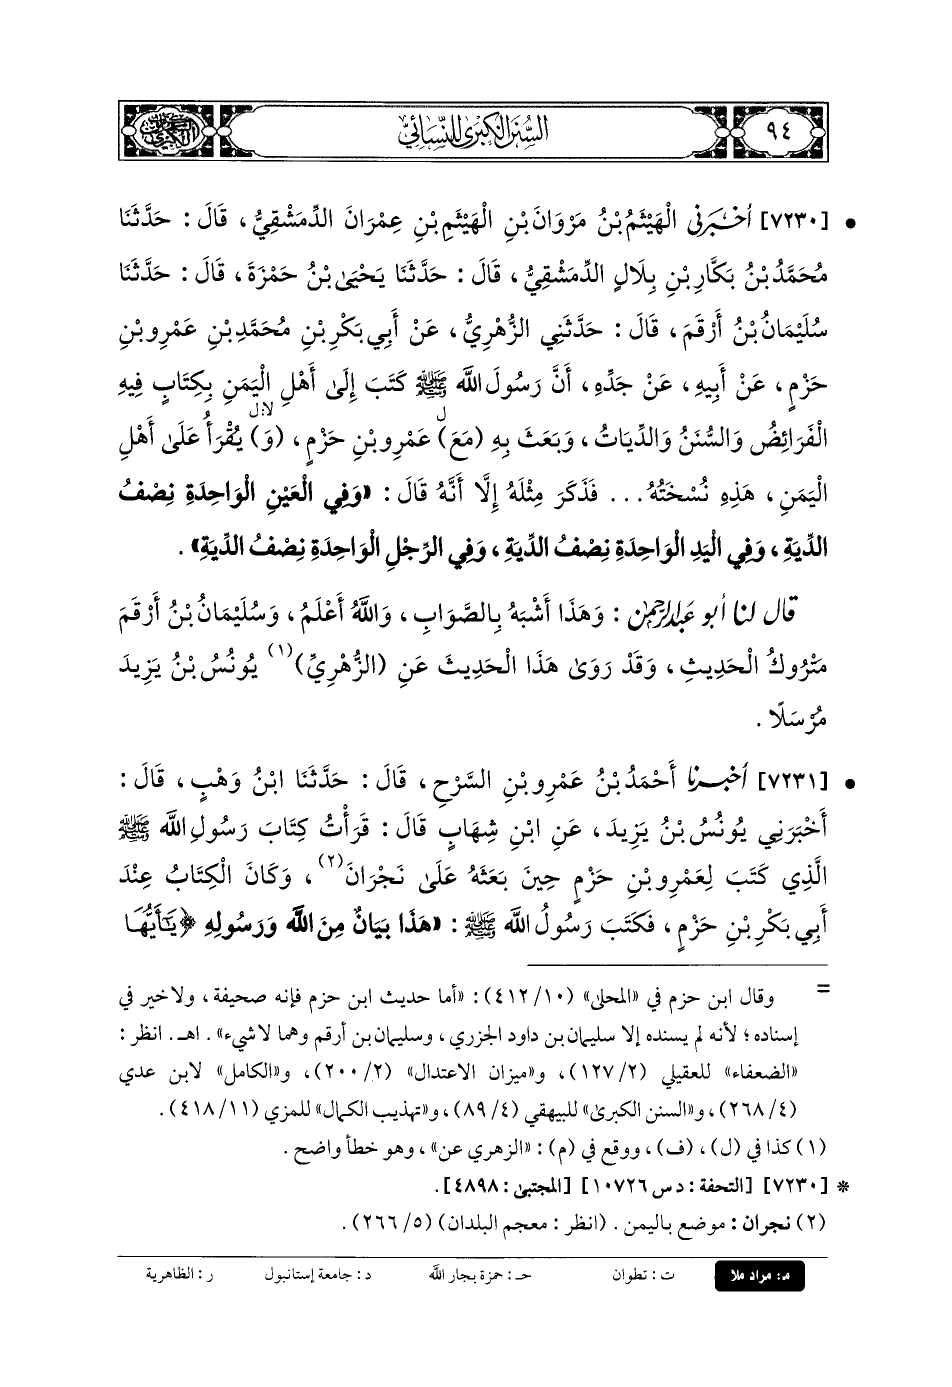 ٩٤
السنن الكبرى للنسائي
• [٧٢٣٠] أَخْبَرَنِي الْهَيْثَمُ بْنُ مَرْوَانَ بْنِ الْهَيْثَمِ بْنِ عِمْرَانَ الدِّمَشْقِيُّ، قَالَ : حَدَّثَنَا
مُحَمَّدُ بْنُ بَكَّارِ بْنِ بِلَالٍ الدِّمَشْقِيُّ، قَالَ : حَدَّثَنَا يَحْيَىٰ بْنُ حَمْزَةَ، قَالَ : حَدَّثَنَا
سُلَيْمَانُ بْنُ أَرْقَمَ، قَالَ : حَدَّثَنِي الزُّهْرِيُّ، عَنْ أَبِي بَكْرِ بْنِ مُحَمَّدِ بْنِ عَمْرِو بْنِ
حَزْمٍ، عَنْ أَبِيهِ، عَنْ جَدِّهِ، أَنَّ رَسُولَ اللَّهِ ﷺ كَتَبَ إِلَىٰ أَهْلِ الْيَمَنِ بِكِتَابٍ فِيهِ
ل لا:ل
الْفَرَائِضُ وَالسُّنَنُ وَالدِّيَاتُ، وَبَعَثَ بِهِ (مَعَ) عَمْرِو بْنِ حَزْمٍ، (وَ) يُقْرَأُ عَلَىٰ أَهْلِ
الْيَمَنِ، هَذِهِ نُسْخَتُهُ... فَذَكَرَ مِثْلَهُ إِلَّا أَنَّهُ قَالَ : «وَفِي الْعَيْنِ الْوَاحِدَةِ نِصْفُ
الدِّيَةِ، وَفِي الْيَدِ الْوَاحِدَةِ نِصْفُ الدِّيَةِ، وَفِي الرِّجْلِ الْوَاحِدَةِ نِصْفُ الدِّيَةِ» .
قال لنا أبو عبد الرحمن : وَهَذَا أَشْبَهُ بِالصَّوَابِ، وَاللَّهُ أَعْلَمُ، وَسُلَيْمَانُ بْنُ أَرْقَمَ
مَتْرُوكُ الْحَدِيثِ، وَقَدْ رَوَىٰ هَذَا الْحَدِيثَ عَنِ (الزُّهْرِيِّ)(١) يُونُسُ بْنُ يَزِيدَ
مُرْسَلًا .
• [٧٢٣١] أَخْبَرَنَا أَحْمَدُ بْنُ عَمْرِو بْنِ السَّرْحِ، قَالَ : حَدَّثَنَا ابْنُ وَهْبٍ، قَالَ :
أَخْبَرَنِي يُونُسُ بْنُ يَزِيدَ، عَنِ ابْنِ شِهَابٍ قَالَ : قَرَأْتُ كِتَابَ رَسُولِ اللَّهِ ﷺ
الَّذِي كَتَبَ لِعَمْرِو بْنِ حَزْمٍ حِينَ بَعَثَهُ عَلَىٰ نَجْرَانَ(٢)، وَكَانَ الْكِتَابُ عِنْدَ
أَبِي بَكْرِ بْنِ حَزْمٍ، فَكَتَبَ رَسُولُ اللَّهِ ﷺ : «هَذَا بَيَانٌ مِنَ اللَّهِ وَرَسُولِهِ ﴿يَٰٓأَيُّهَا
= وقال ابن حزم في «المحلى» (١٠/ ٤١٢) : «أما حديث ابن حزم فإنه صحيفة، ولا خير في
إسناده؛ لأنه لم يسنده إلا سليمان بن داود الجزري، وسليمان بن أرقم وهما لا شيء» . اهـ. انظر :
«الضعفاء» للعقيلي (٢/ ١٢٧)، و«ميزان الاعتدال» (٢/ ٢٠٠)، و«الكامل» لابن عدي
(٤/ ٢٦٨)، و«السنن الكبرى» للبيهقي (٤/ ٨٩)، و«تهذيب الكمال» للمزي (١١/ ٤١٨) .
(١) كذا في (ل)، (ف)، ووقع في (م) : «الزهري عن»، وهو خطأ واضح .
* [٧٢٣٠] [التحفة : د س ١٠٧٢٦] [المجتبى : ٤٨٩٨] .
(٢) نجران : موضع باليمن . (انظر : معجم البلدان) (٥/ ٢٦٦) .
م: مراد ملا ت : تطوان حـ : حمزة بجار الله د : جامعة إستانبول ر : الظاهرية